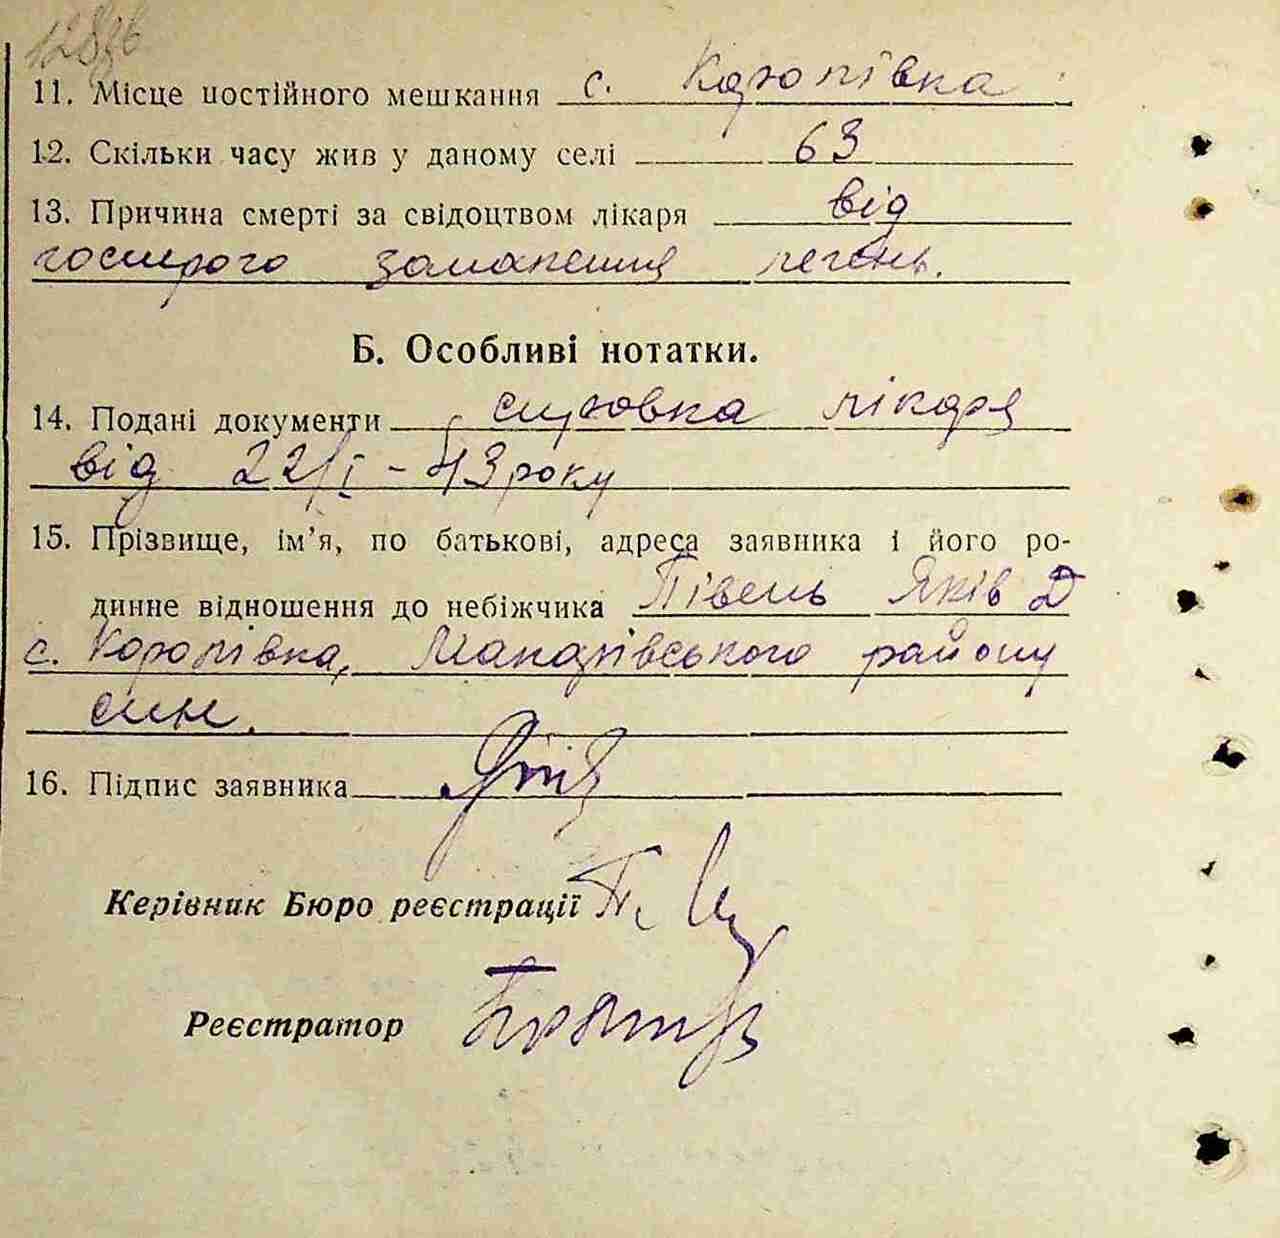 11. Місце постійного мешкання с. Коропівка
12. Скільки часу жив у даному селі 63
13. Причина смерті за свідоцтвом лікаря від
гострого запалення легень.
Б. Особливі нотатки.
14. Подані документи справка лікаря
від 22/I - 43 року
15. Прізвище, ім'я, по батькові, адреса заявника і його ро-
динне відношення до небіжчика Півень Яків Д
с. Коропівка, району
син.
16. Підпис заявника
Керівник Бюро реєстрації
Реєстратор